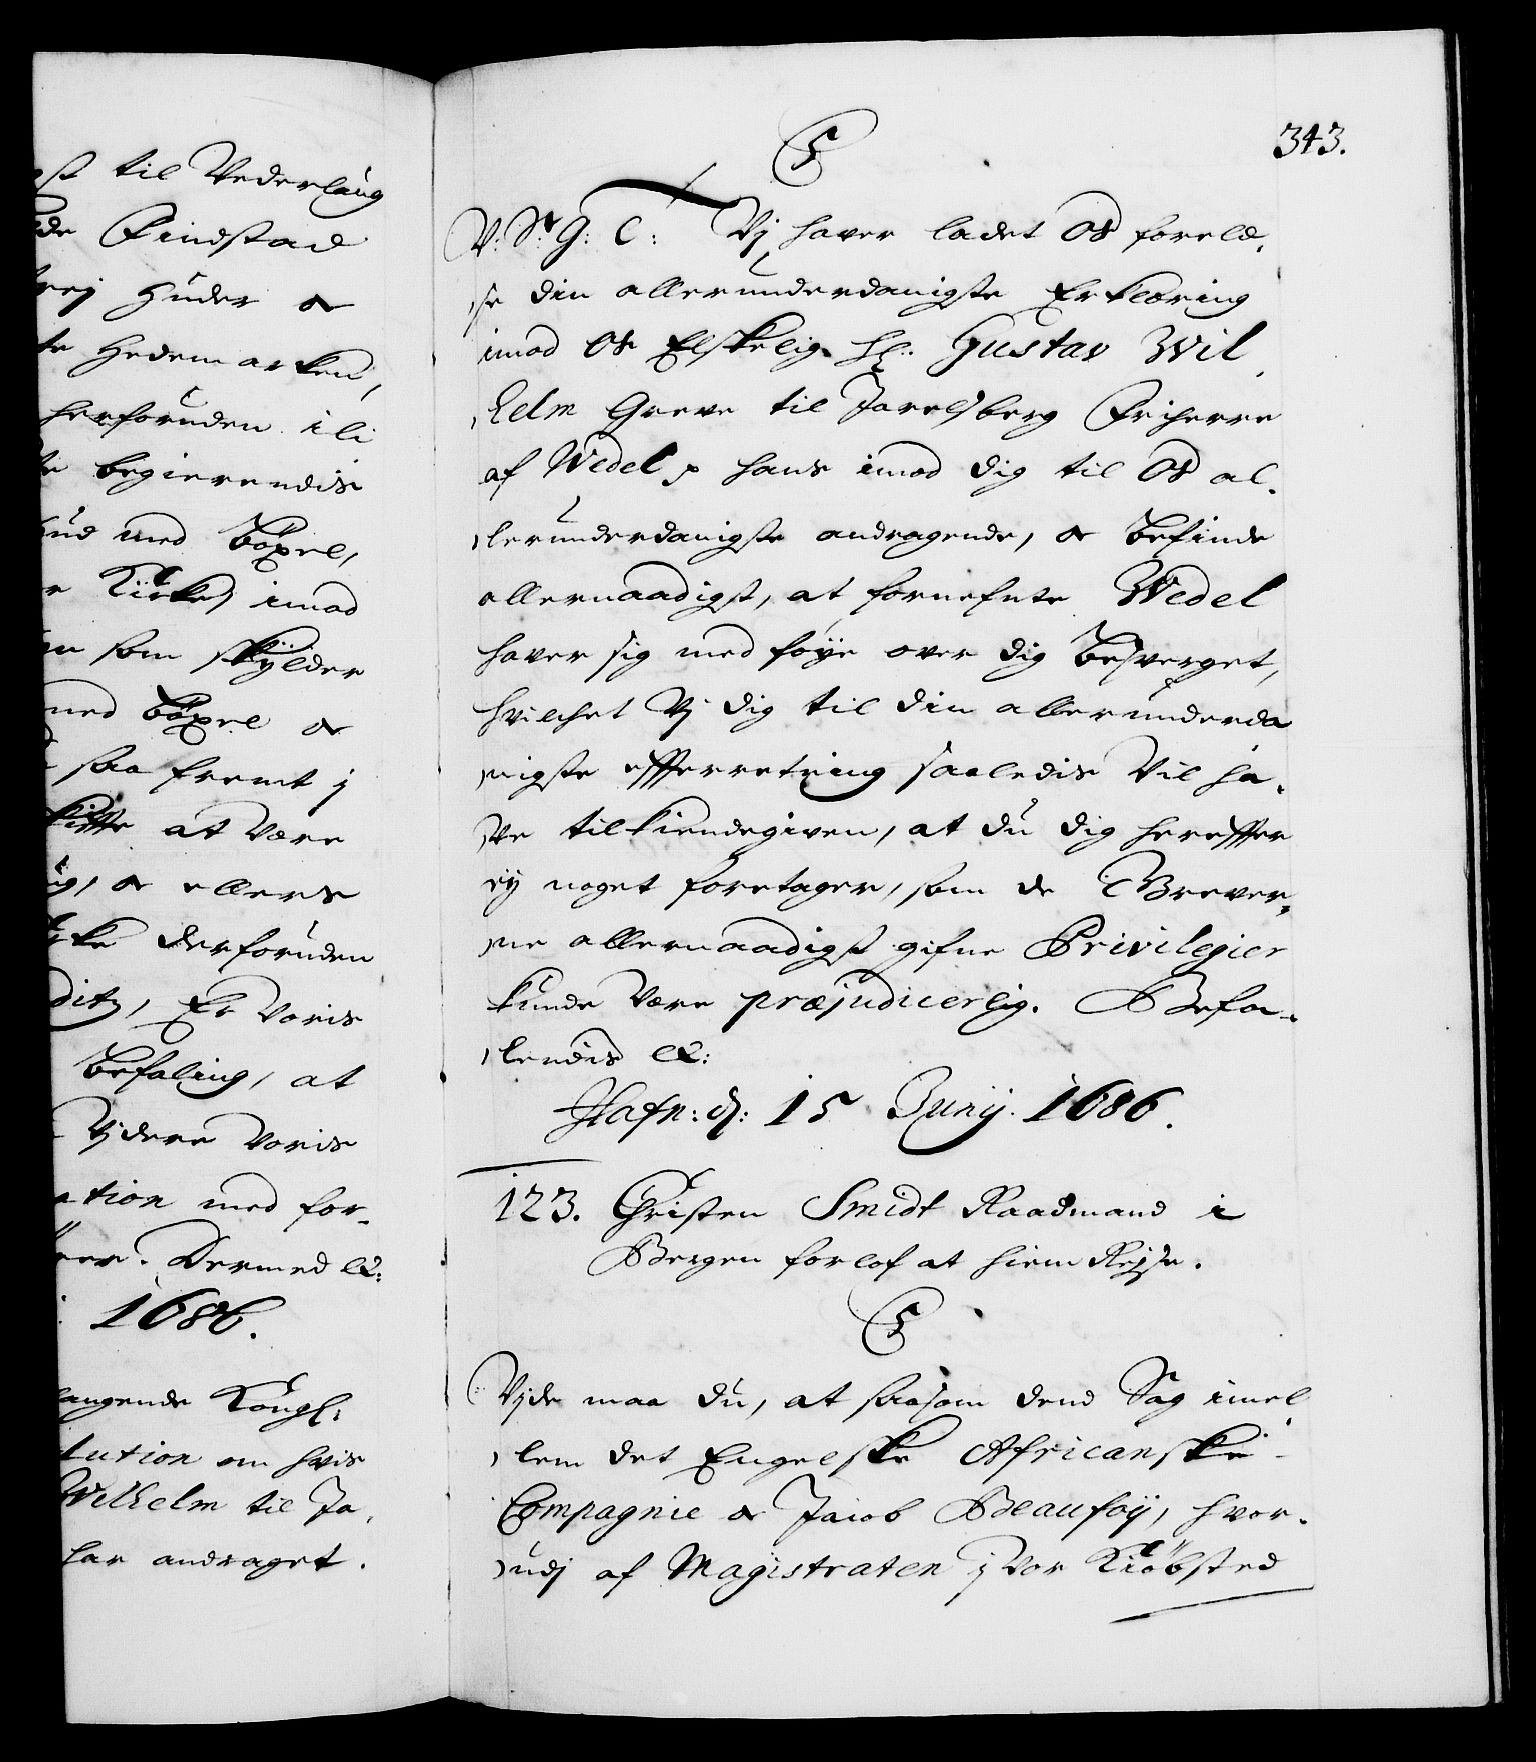 st til Vederlaug
de Findstad
trej Huder &
te Hedemarken,
herforuden ili
te begierendis
hud med Böxel,
r Kircke) imod
en som skÿlder
med Böxel &
saa fremt j
at være
ig, & ellers
rke derforuden
ditz, Er Voris
Befaling, at
Vjdere Voris
ation med for-
Dermed &c:
1686.
langende Kongl:
lution om hvis
Wilhelm til Ja,
har andraget.
343.
C5
V: Sr: G: C: Vj haver ladet Os forelæ,
,se din allerunderdanigste Erklæring
imod Os Elskelig Hl: Gustav Wil,
,helm Greve til Jarelsberg Friherre
af Wedel p hans imod dig til Os al,
,lerunderdanigste andragende, & befinde
allernaadigst, at fornefnte Wedel
haver sig med föÿe over dig besverget,
hvilchet Vj dig til din allerunderda
,nigste effterretning saaledis Vil ha,
,ve tilkiendegiven, at du dig hereffter
eÿ noget foretager, som de Grever,
,ne allernaadigst gifne Privilegier
kunde være præjudicerlig. Befa-
,lendis &c:
Hafn: d: 15 Junij. 1686.
123. Christen Smidt Raadmand i
Bergen forlof at hiem Rejse.
C5
Vjde maa du, at saasom dend Sag imel,
,lem det Engelske Africanske
Compagnie & Jacob Beaufoÿ, hvor-
,udj af Magistraten j Vor Kiöbsted